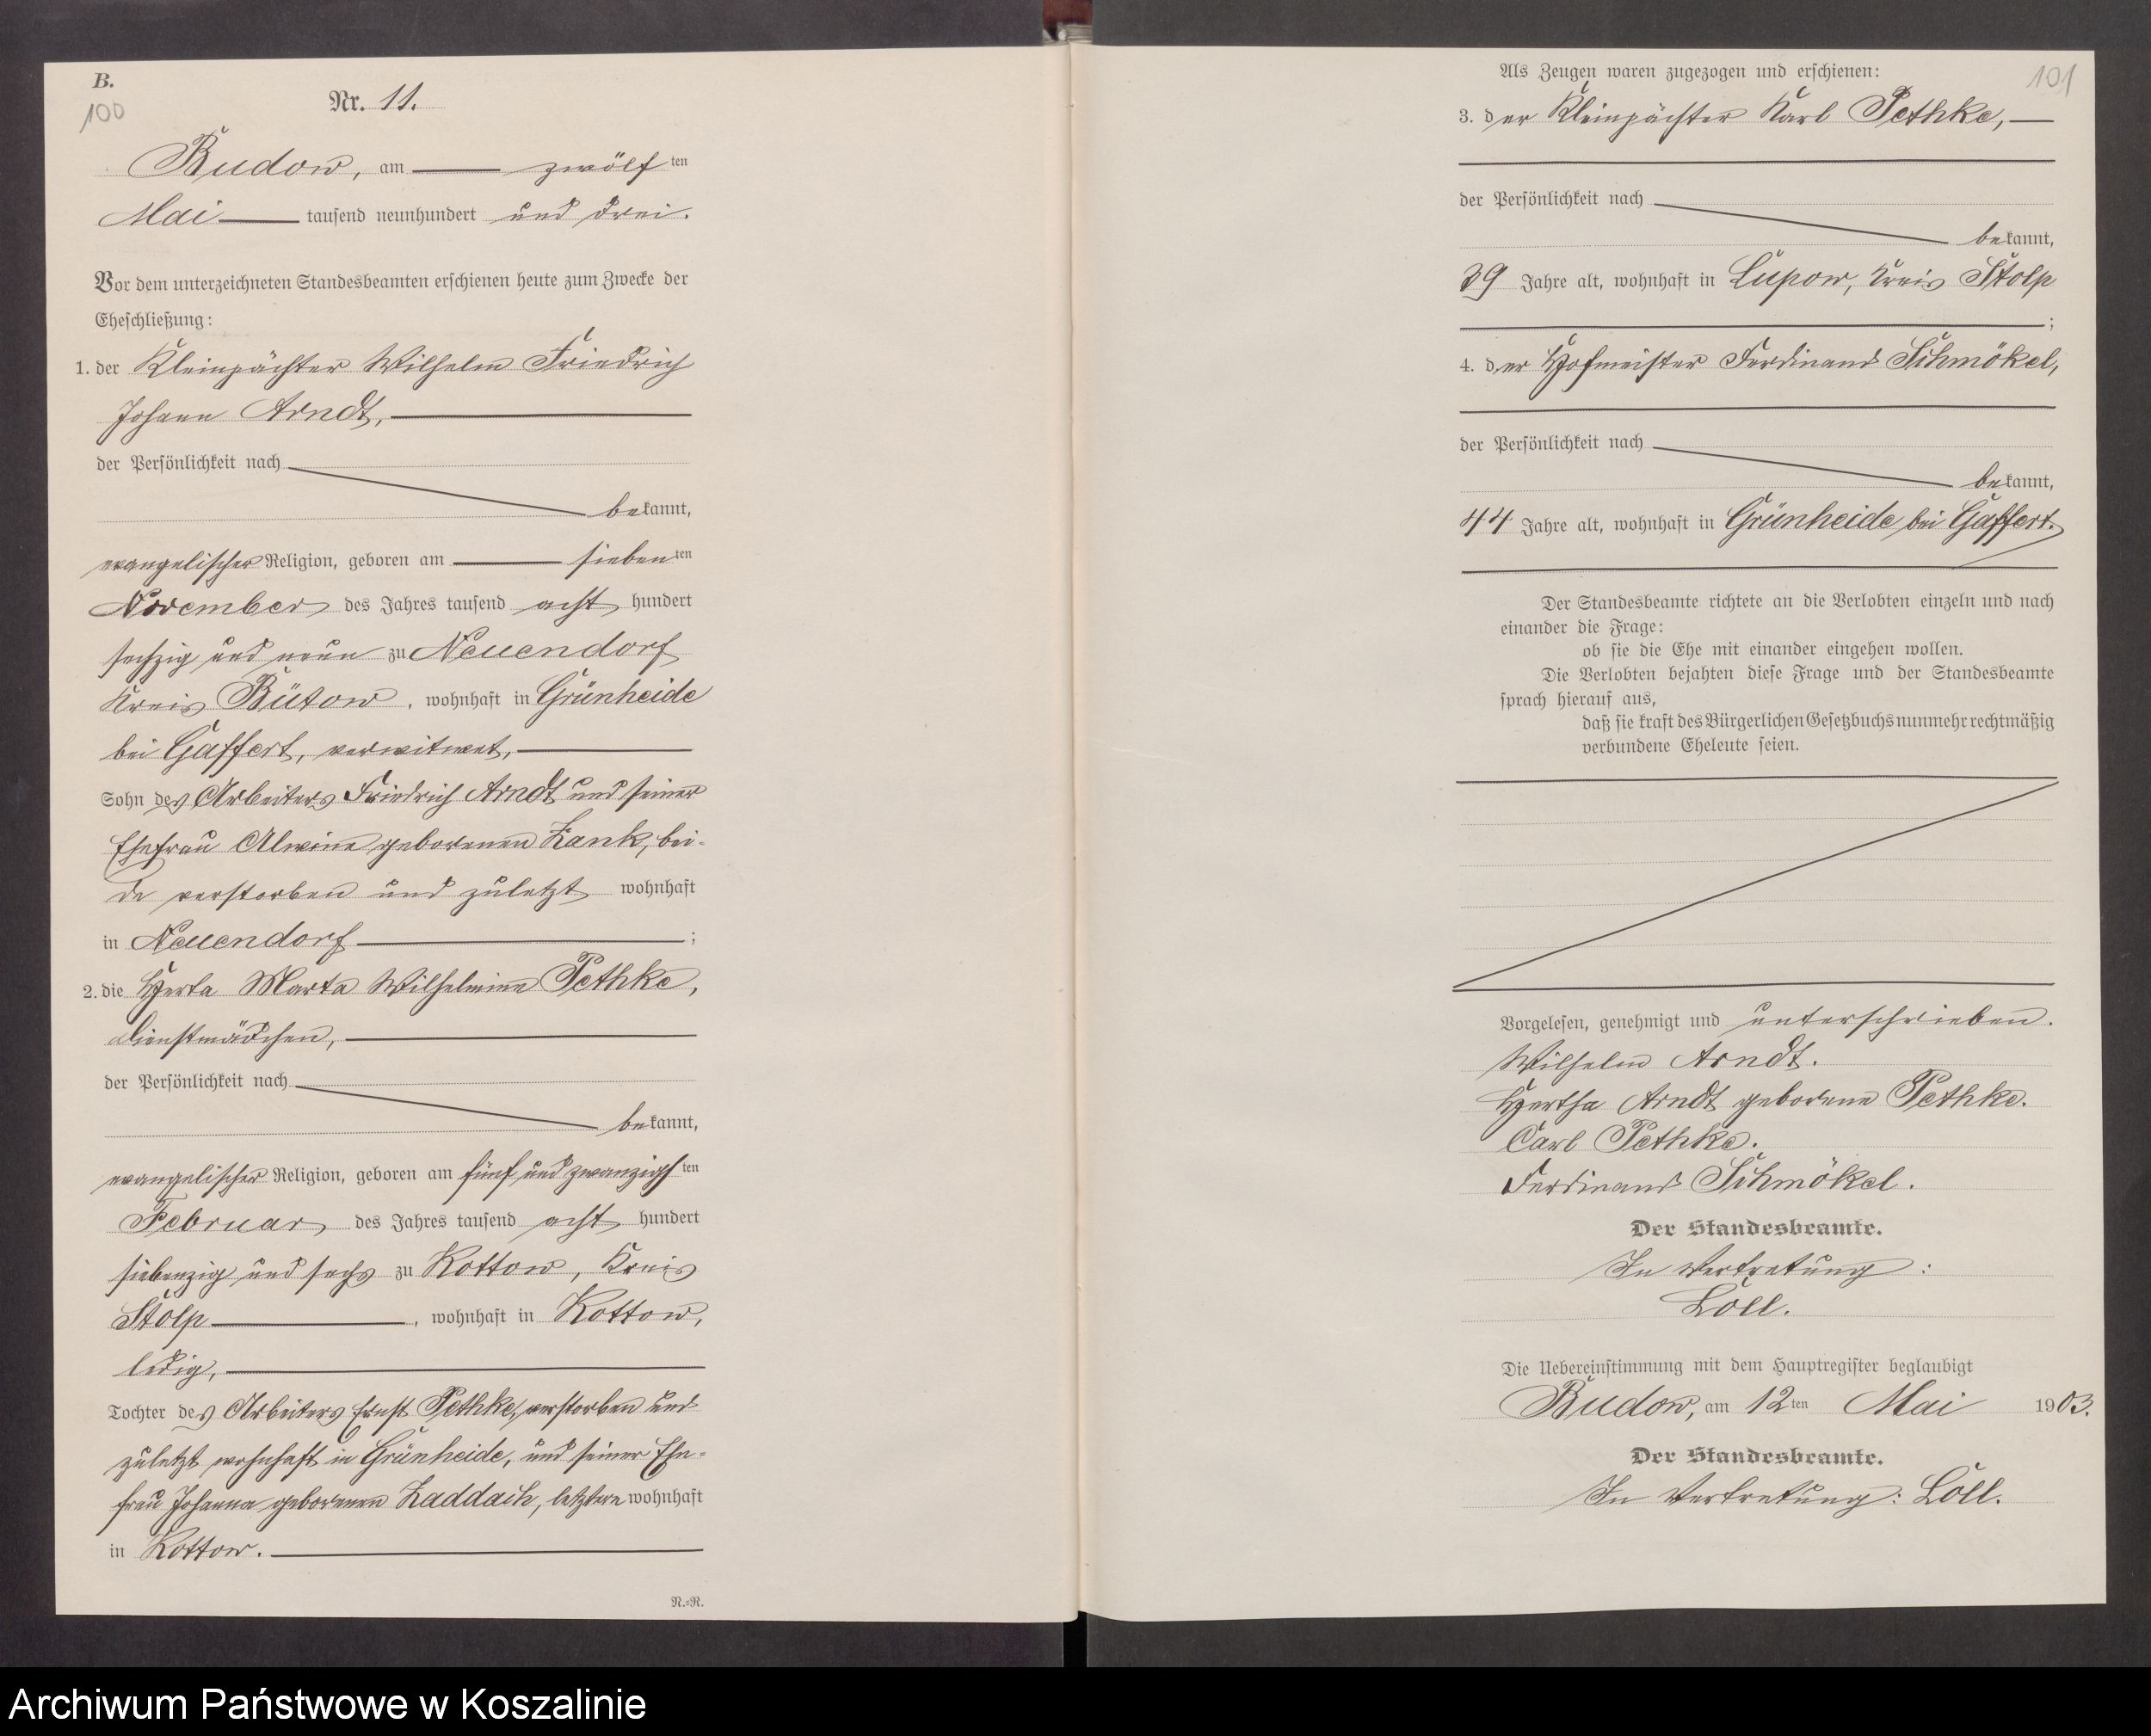 B.
100
Nr. 11.
Budow, am zwölf ten
Mai tausend neunhundert und drei.
Vor dem unterzeichneten Standesbeamten erschienen heute zum Zwecke der
Eheschließung:
1. der Kleinpächter Wilhelm Friedrich
Johann Arndt,
der Persönlichkeit nach
bekannt,
evangelischer Religion, geboren am sieben ten
November des Jahres tausend acht hundert
sechzig und neun zu Neuendorf
Kreis Bütow, wohnhaft in Grünheide
bei Gaffert, verwitwet,
Sohn des Arbeiters Friedrich Arndt und seiner
Ehefrau Alwine geborenen Zank, bei-
de verstorben und zuletzt wohnhaft
in Neuendorf ;
2. die Herta Marta Wilhelmine Pethke,
Dienstmädchen,
der Persönlichkeit nach
bekannt,
evangelischer Religion, geboren am fünf und zwanzigsten
Februar des Jahres tausend acht hundert
siebenzig und sechs zu Kottow, Kreis
Stolp, wohnhaft in Kottow,
ledig,
Tochter des Arbeiters Ernst Pethke, verstorben und
zuletzt wohnhaft in Grünheide, und seiner Ehe-
frau Johanna geborenen Zaddach, letztere wohnhaft
in Kottow.
N.-R.
101
Als Zeugen waren zugezogen und erschienen:
3. der Kleinpächter Karl Pethke,
der Persönlichkeit nach
bekannt,
39 Jahre alt, wohnhaft in Lupow, Kreis Stolp
;
4. der Hofmeister Ferdinand Schmökel,
der Persönlichkeit nach
bekannt,
44 Jahre alt, wohnhaft in Grünheide bei Gaffert.
Der Standesbeamte richtete an die Verlobten einzeln und nach
einander die Frage:
ob sie die Ehe mit einander eingehen wollen.
Die Verlobten bejahten diese Frage und der Standesbeamte
sprach hierauf aus,
daß sie kraft des Bürgerlichen Gesetzbuchs nunmehr rechtmäßig
verbundene Eheleute seien.
Vorgelesen, genehmigt und unterschrieben.
Wilhelm Arndt.
Hertha Arndt geborene Pethke.
Carl Pethke.
Ferdinand Schmökel.
Der Standesbeamte.
In Vertretung:
Löll.
Die Uebereinstimmung mit dem Hauptregister beglaubigt
Budow, am 12ten Mai 1903.
Der Standesbeamte.
In Vertretung: Löll.
Archiwum Państwowe w Koszalinie